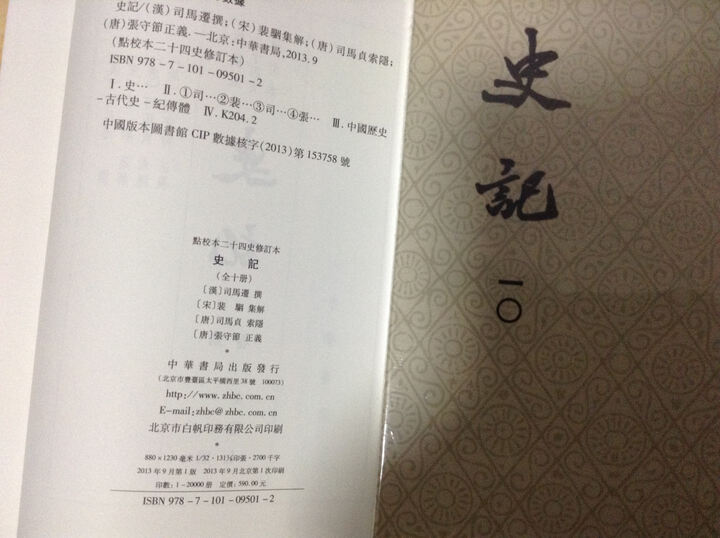 史記/(漢)司馬遷撰;(宋)裴駰集解;(唐)司馬貞索隱;
(唐)張守節正義.—北京:中華書局,2013.9
(點校本二十四史修訂本)
ISBN 978-7-101-09501-2
Ⅰ.史… Ⅱ.①司…②裴…③司…④張… Ⅲ.中國歷史
-古代史-紀傳體 Ⅳ.K204.2
中國版本圖書館CIP數據核字(2013)第153758號
點校本二十四史修訂本
史 記
(全十册)
〔漢〕司馬遷 撰
〔宋〕裴 駰 集解
〔唐〕司馬貞 索隱
〔唐〕張守節 正義
*
中華書局出版發行
(北京市豐臺區太平橋西里38號 100073)
http://www.zhbc.com.cn
E-mail:zhbc@zhbc.com.cn
北京市白帆印務有限公司印刷
*
880×1230毫米 1/32·131⅞印張·2700千字
2013年9月第1版 2013年9月北京第1次印刷
印數:1-20000册 定價:590.00元
ISBN 978-7-101-09501-2
史記
一〇